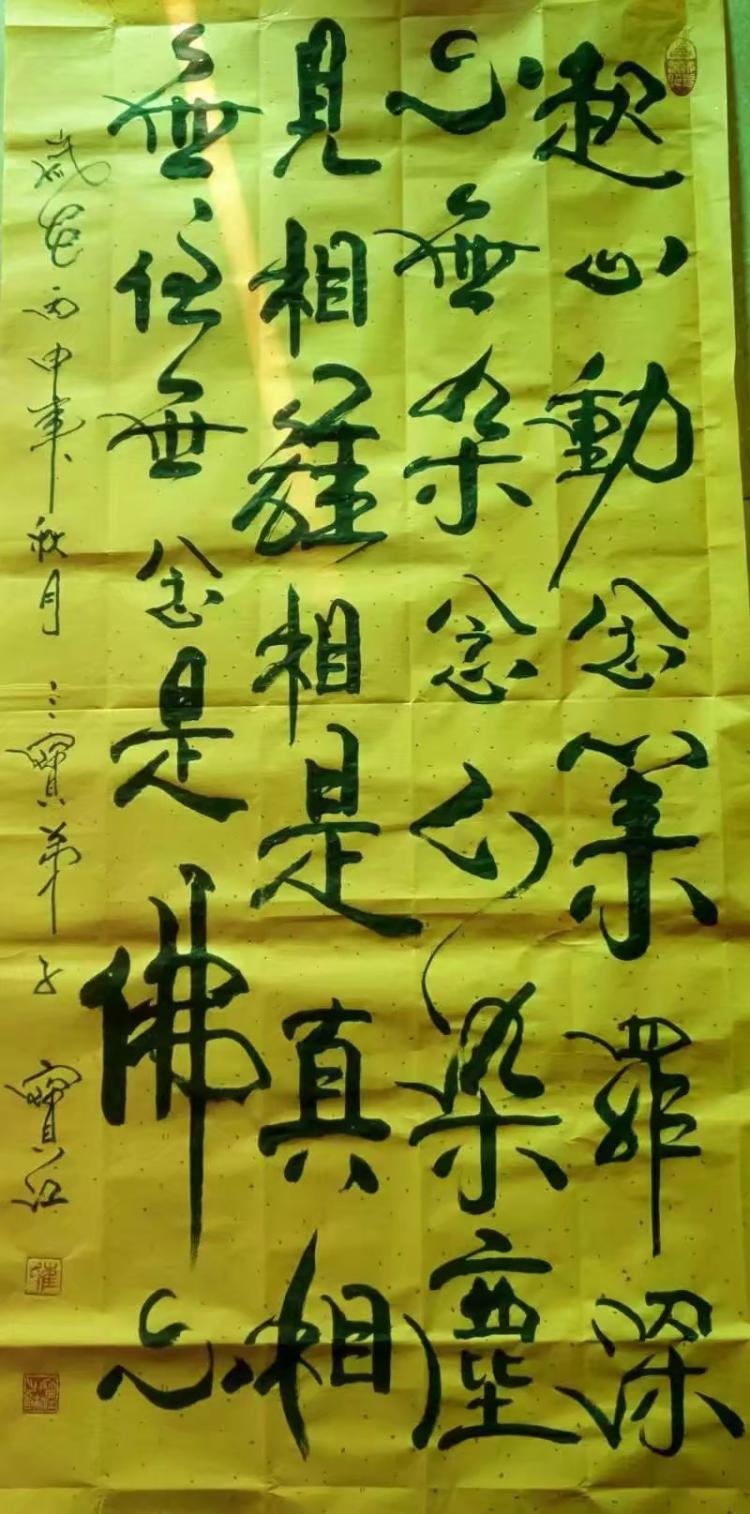 起心動念業罪深
心無染念幻染塵
見相離相是真相
無住無念是佛心
歲在丙申年秋月 三寶弟子 寶江